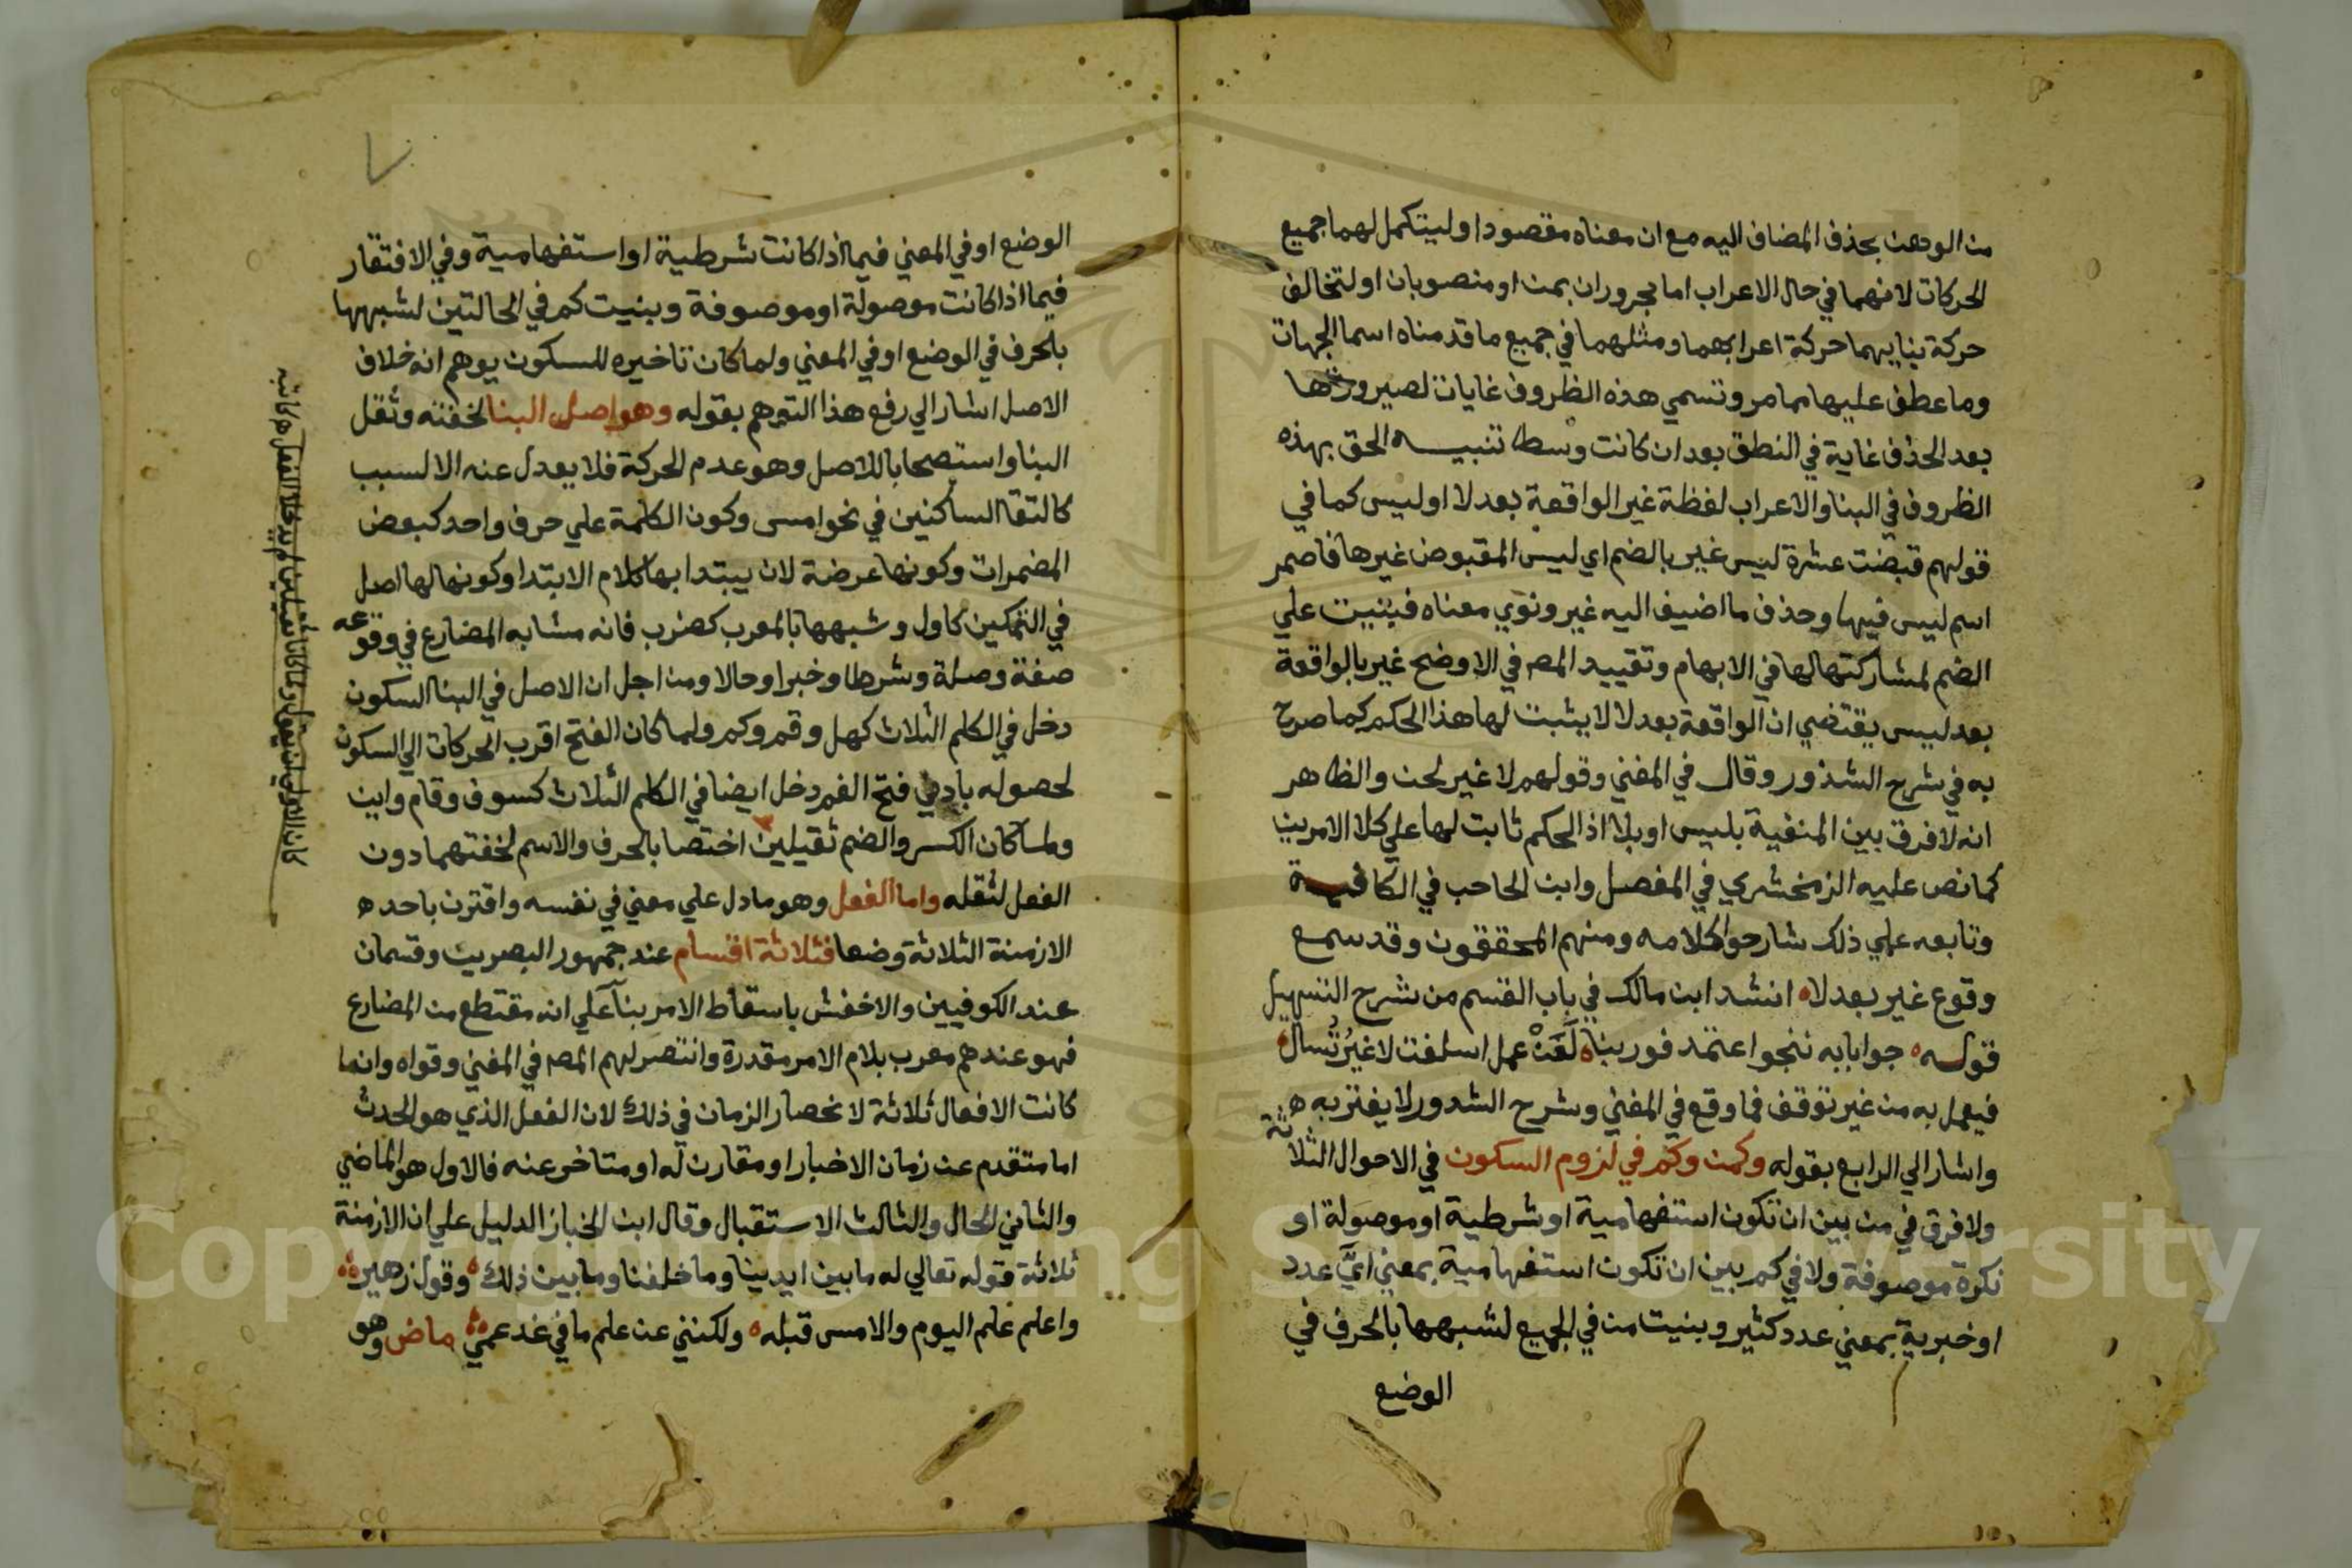 من الوهن بحذف المضاف اليه مع ان معناه مقصودا وليتكمل لهما جميع
الحركات لانهما في حال الاعراب اما مجروران بمن او منصوبان او لتخالف
حركة بنايهما حركة اعرابهما ومثلهما في جميع ما قدمناه اسما الجهات
وما عطف عليها مما مر وتسمي هذه الظروف غايات لصيرورتها
بعد الحذف غاية في النطق بعد ان كانت وسطا تنبيه الحق بهذه
الظروف في البنا والاعراب لفظة غير الواقعة بعد لا او ليس كما في
قولهم قبضت عشرة ليس غير بالضم اي ليس المقبوض غيرها فاضمر
اسم ليس فيها وحذف ما اضيف اليه غير ونوي معناه فبنيت علي
الضم لمشاركتها لها في الابهام وتقييد المص في الاوضح غير بالواقعة
بعد ليس يقتضي ان الواقعة بعد لا لا يثبت لها هذا الحكم كما صرح
به في شرح الشذور وقال في المغني وقولهم لا غير لحن والظاهر
انه لا فرق بين المنفية بليس او بلا اذ الحكم ثابت لها علي كلا الامرين
كما نص عليه الزمخشري في المفصل وابن الحاجب في الكافية
وتابعه علي ذلك شارحوا كلامه ومنهم المحققون وقد سمع
وقوع غير بعد لا انشد ابن مالك في باب القسم من شرح التسهيل
قوله جوابا به تنجو اعتمد فوربنا لَعَنْ عمل اسلفت لا غيرُ تُسال
فيعمل به من غير توقف فما وقع في المغني وشرح الشدور لا يغتر به
واشار الي الرابع بقوله وكمن وكم في لزوم السكون في الاحوال الثلاثة
ولا فرق في من بين ان تكون استفهامية او شرطية او موصولة او
نكرة موصوفة ولا في كم بين ان تكون استفهامية بمعني ايَّ عدد
او خبرية بمعني عدد كثير وبنيت من في الجميع لشبهها بالحرف في
الوضع
الوضع او في المعني فيما اذا كانت شرطية او استفهامية وفي الافتقار
فيما اذا كانت موصولة او موصوفة وبنيت كم في الحالتين لشبهها
بالحرف في الوضع او في المعني ولما كان تاخيره للسكون يوهم انه خلاف
الاصل اشار الي رفع هذا التوهم بقوله وهو اصل البنا لخفته وثقل
البنا واستصحابا للاصل وهو عدم الحركة فلا يعدل عنه الا لسبب
كالتقا الساكنين في نحو امس وكون الكلمة علي حرف واحد كبعض
المضمرات وكونها عرضة لان يبتدا بها كلام الابتدا وكونها لها اصل
في التمكين كاول وشبهها بالمعرب كضرب فانه مشابه المضارع في وقوعه
صفة وصلة وشرطا وخبرا وحالا ومن اجل ان الاصل في البنا السكون
دخل في الكلم الثلاث كهل وقم وكم ولما كان الفتح اقرب الحركات الي السكون
لحصوله بادني فتح الفم دخل ايضا في الكلم الثلاث كسوف وقام واين
ولما كان الكسر والضم ثقيلين اختصا بالحرف والاسم لخفتهما دون
الفعل لثقله واما الفعل وهو ما دل علي معني في نفسه واقترن باحد
الازمنة الثلاثة وضعا فثلاثة اقسام عند جمهور البصريين وقسمان
عند الكوفيين والاخفش باسقاط الامر بنا علي انه مقتطع من المضارع
فهو عندهم معرب بلام الامر مقدرة وانتصر لهم المص في المغني وقواه وانما
كانت الافعال ثلاثة لانحصار الزمان في ذلك لان الفعل الذي هو الحدث
اما متقدم عن زمان الاخبار او مقارن له او متاخر عنه فالاول هو الماضي
والثاني الحال والثالث الاستقبال وقال ابن الخباز الدليل علي ان الازمنة
ثلاثة قوله تعالي له ما بين ايدينا وما خلفنا وما بين ذلك وقول زهير
واعلم علم اليوم والامس قبله ولكنني عن علم ما في غد عمي ماض وهو
Copyright © King Saud University